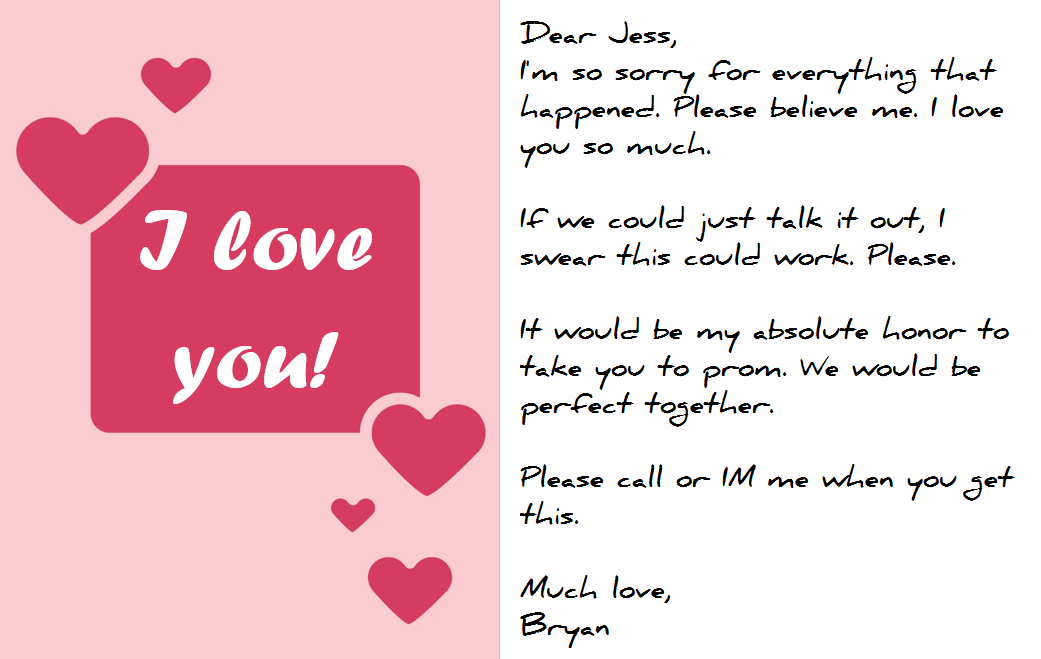 I love
you!
Dear Jess,
I'm so sorry for everything that
happened. Please believe me. I love
you so much.
If we could just talk it out, I
swear this could work. Please.
It would be my absolute honor to
take you to prom. We would be
perfect together.
Please call or IM me when you get
this.
Much love,
Bryan